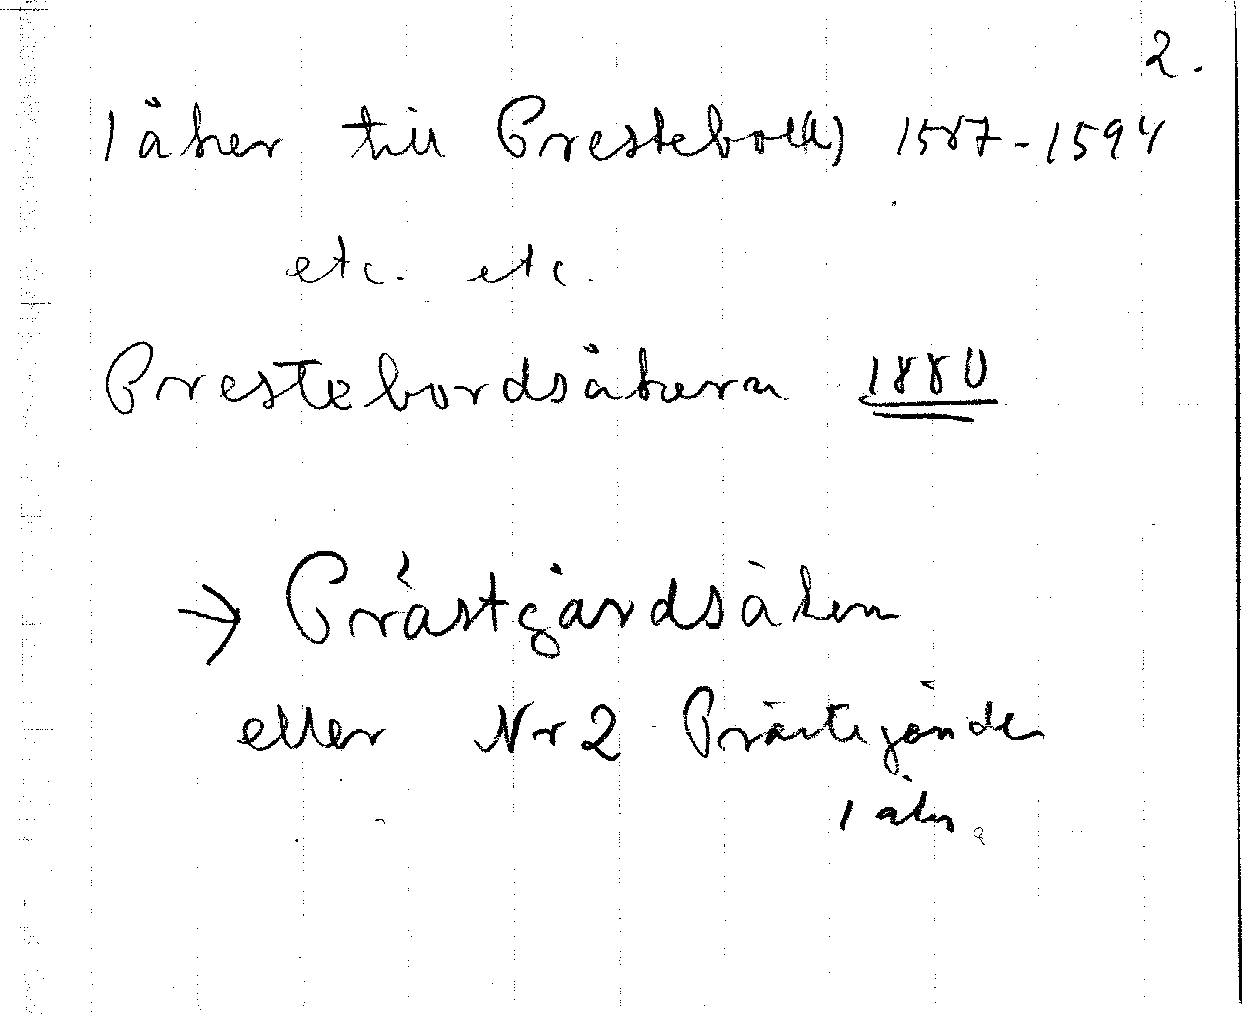 2.
1 åker till Prestebol(l) 1587-1594
etc. etc.
Prestebordsåkern 1880
→ Prästgårdsåkern
eller Nr 2 Prästegården
1 åker